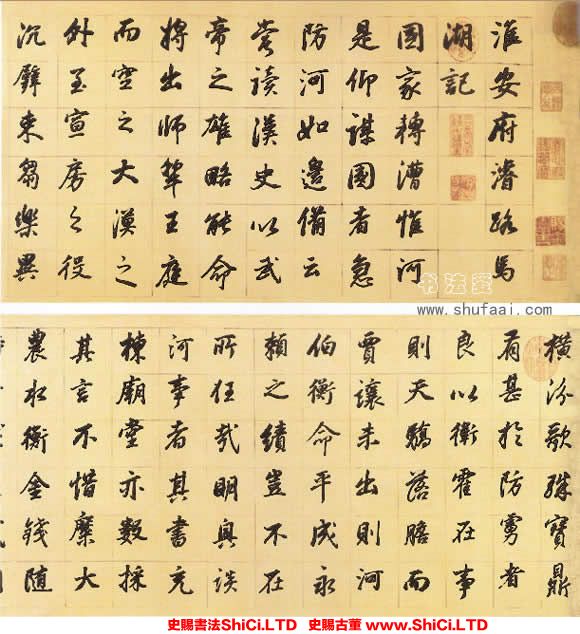 淮安府濬路馬
湖記
國家轉漕惟河
是仰謀國者急
防河如邊備云
嘗讀漢史以武
帝之雄略能命
將出師犂王庭
而空之大漠之
外至宣房之役
沉璧束芻樂異
书法爱
www.shufaai.com
橫汾歌殊寶鼎
有甚於防虜者
良以衛霍在事
則天驕落膽而
賈讓未出則河
伯衡命平成永
賴之績豈不在
所任哉明興談
河事者其書充
棟廟堂亦數採
其言不惜糜大
農水衡金錢随
史賜書法ShiCi.LTD 史賜古董 www.ShiCi.LTD